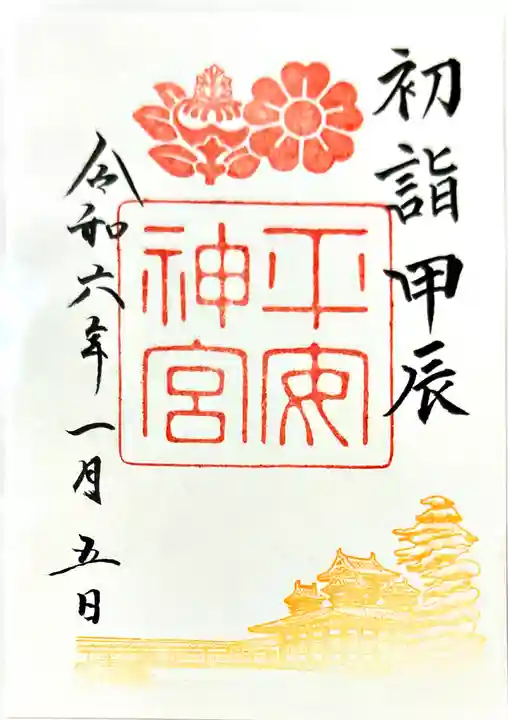 初詣 甲辰
平安
神宮
令和六年一月五日